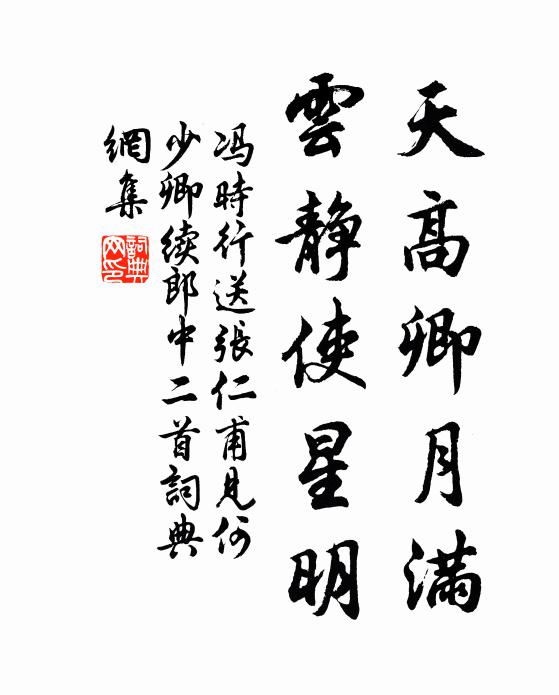 天高卿月满
雲静使星明
冯時行送張仁甫見何
少卿续郎中二首詞典
網集
詞典
网印